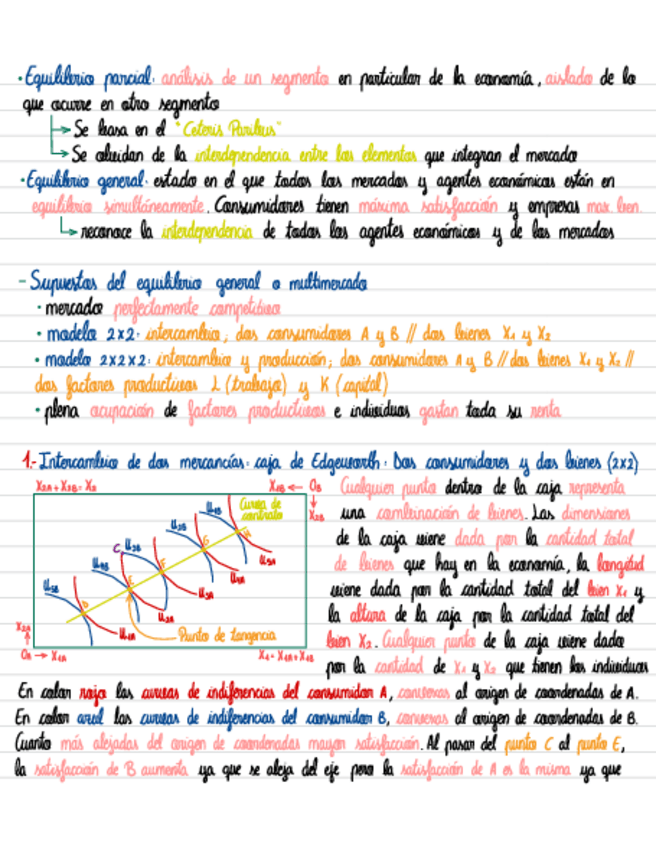 · Equilibrio parcial: análisis de un segmento en particular de la economía, aislado de lo
que ocurre en otro segmento
→ Se basa en el "Ceteris Paribus"
→ Se olvidan de la interdependencia entre los elementos que integran el mercado
· Equilibrio general: estado en el que todos los mercados y agentes económicos están en
equilibrio simultáneamente. Consumidores tienen máxima satisfacción y empresas max. ben.
↳ reconoce la interdependencia de todos los agentes económicos y de los mercados
- Supuestos del equilibrio general o multimercado
· mercado perfectamente competitivo
· modelo 2x2: intercambio; dos consumidores A y B // dos bienes X1 y X2
· modelo 2x2x2: intercambio y producción; dos consumidores A y B // dos bienes X1 y X2 //
dos factores productivos L (trabajo) y K (capital)
· plena ocupación de factores productivos e individuos gastan toda su renta
1.- Intercambio de dos mercancías: caja de Edgeworth: Dos consumidores y dos bienes (2x2)
X2A + X2B = X2
X1B ← OB
X2B
Curva de
contrato
U1B
U2B
U3B
U4B
U5B
C
D
E
F
G
U1A
U2A
U3A
U4A
U5A
Punto de tangencia
X2A
OA → X1A
X1 = X1A + X1B
Cualquier punto dentro de la caja representa
una combinación de bienes. Las dimensiones
de la caja viene dada por la cantidad total
de bienes que hay en la economía, la longitud
viene dada por la cantidad total del bien X1 y
la altura de la caja por la cantidad total del
bien X2. Cualquier punto de la caja viene dado
por la cantidad de X1 y X2 que tienen los individuos
En color rojo las curvas de indiferencias del consumidor A, convexas al origen de coordenadas de A.
En color azul las curvas de indiferencias del consumidor B, convexas al origen de coordenadas de B.
Cuanto más alejadas del origen de coordenadas mayor satisfacción. Al pasar del punto C al punto E,
la satisfacción de B aumenta ya que se aleja del eje pero la satisfacción de A es la misma ya que